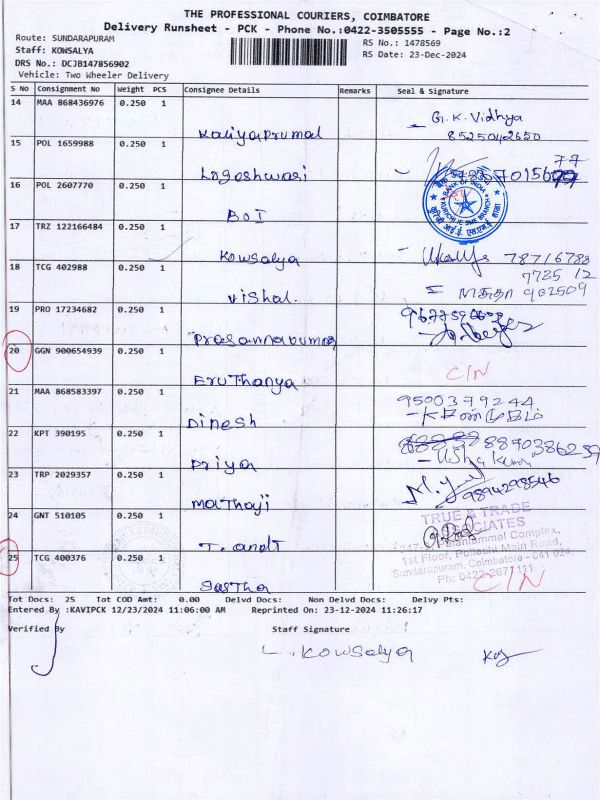 THE PROFESSIONAL COURIERS, COIMBATORE
Delivery Runsheet - PCK - Phone No.:0422-3505555 - Page No.:2
Route: SUNDARAPURAM
RS No.: 1478569
Staff: KOWSALYA
RS Date: 23-Dec-2024
DRS No.: DCJB147856902
Vehicle: Two Wheeler Delivery
S No Consignment No Weight PCS Consignee Details Remarks Seal & Signature
14 MAA 868436976 0.250 1 Kaliyaprumal G.K. Vidhya
8525042650
15 POL 1659988 0.250 1 Logeshwari
16 POL 2607770 0.250 1 BOI
BANK OF INDIA
17 TRZ 122166484 0.250 1 Kowsalya 78716788
7735 12
18 TCG 402988 0.250 1 Vishal. 902509
19 PRO 17234682 0.250 1 Prasannakumar
20 GGN 900654939 0.250 1 Eruthanya C/N
21 MAA 868583397 0.250 1 Dinesh 9500379244
22 KPT 390195 0.250 1 Priya 8870386259
23 TRP 2029357 0.250 1 Mathaji 9894298546
24 GNT 510105 0.250 1 T. and T
TRUE & TRADE
1st Floor, Pollachi Main Road,
Sundarapuram, Coimbatore - 641 024.
Ph: 0422-2671111
25 TCG 400376 0.250 1 Sastha C/N
Tot Docs: 25 Tot COD Amt: 0.00 Delvd Docs: Non Delvd Docs: Delvy Pts:
Entered By :KAVIPCK 12/23/2024 11:06:00 AM Reprinted On: 23-12-2024 11:26:17
Verified By Staff Signature
L. Kowsalya